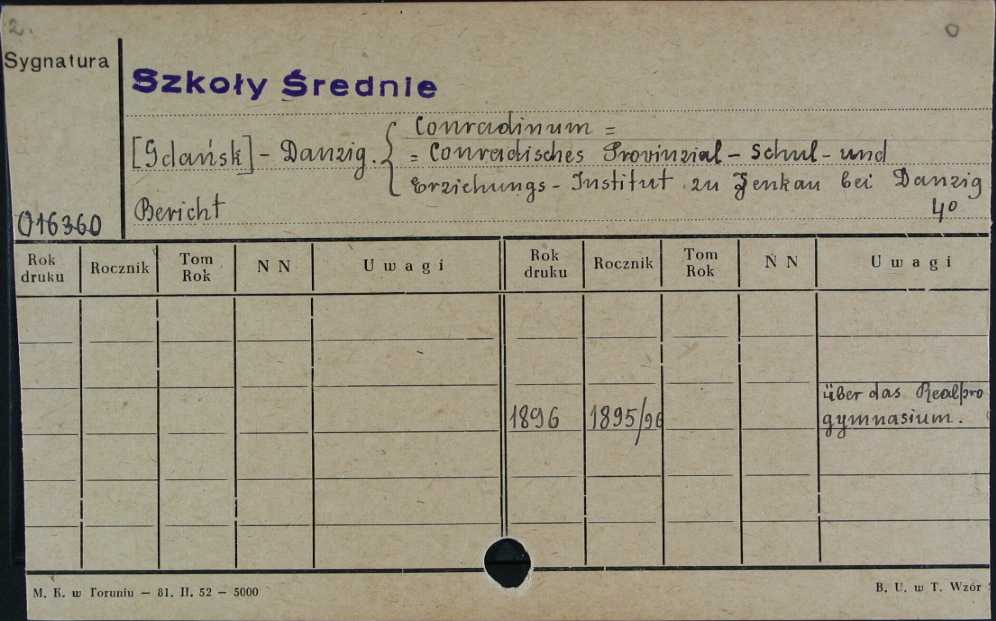 2.
O
Sygnatura
Szkoły Średnie
Conradinum =
[Gdańsk] - Danzig.
= Conradisches Provinzial - Schul - und
Erziehungs - Institut zu Jenkau bei Danzig
Bericht
4°
016360
Rok druku Rocznik Tom Rok N N Uwagi Rok druku Rocznik Tom Rok N N Uwagi
über das Realpro
1896 1895/96 gymnasium.
M. K. w Toruniu — 81. II. 52 — 5000
B. U. w T. Wzór